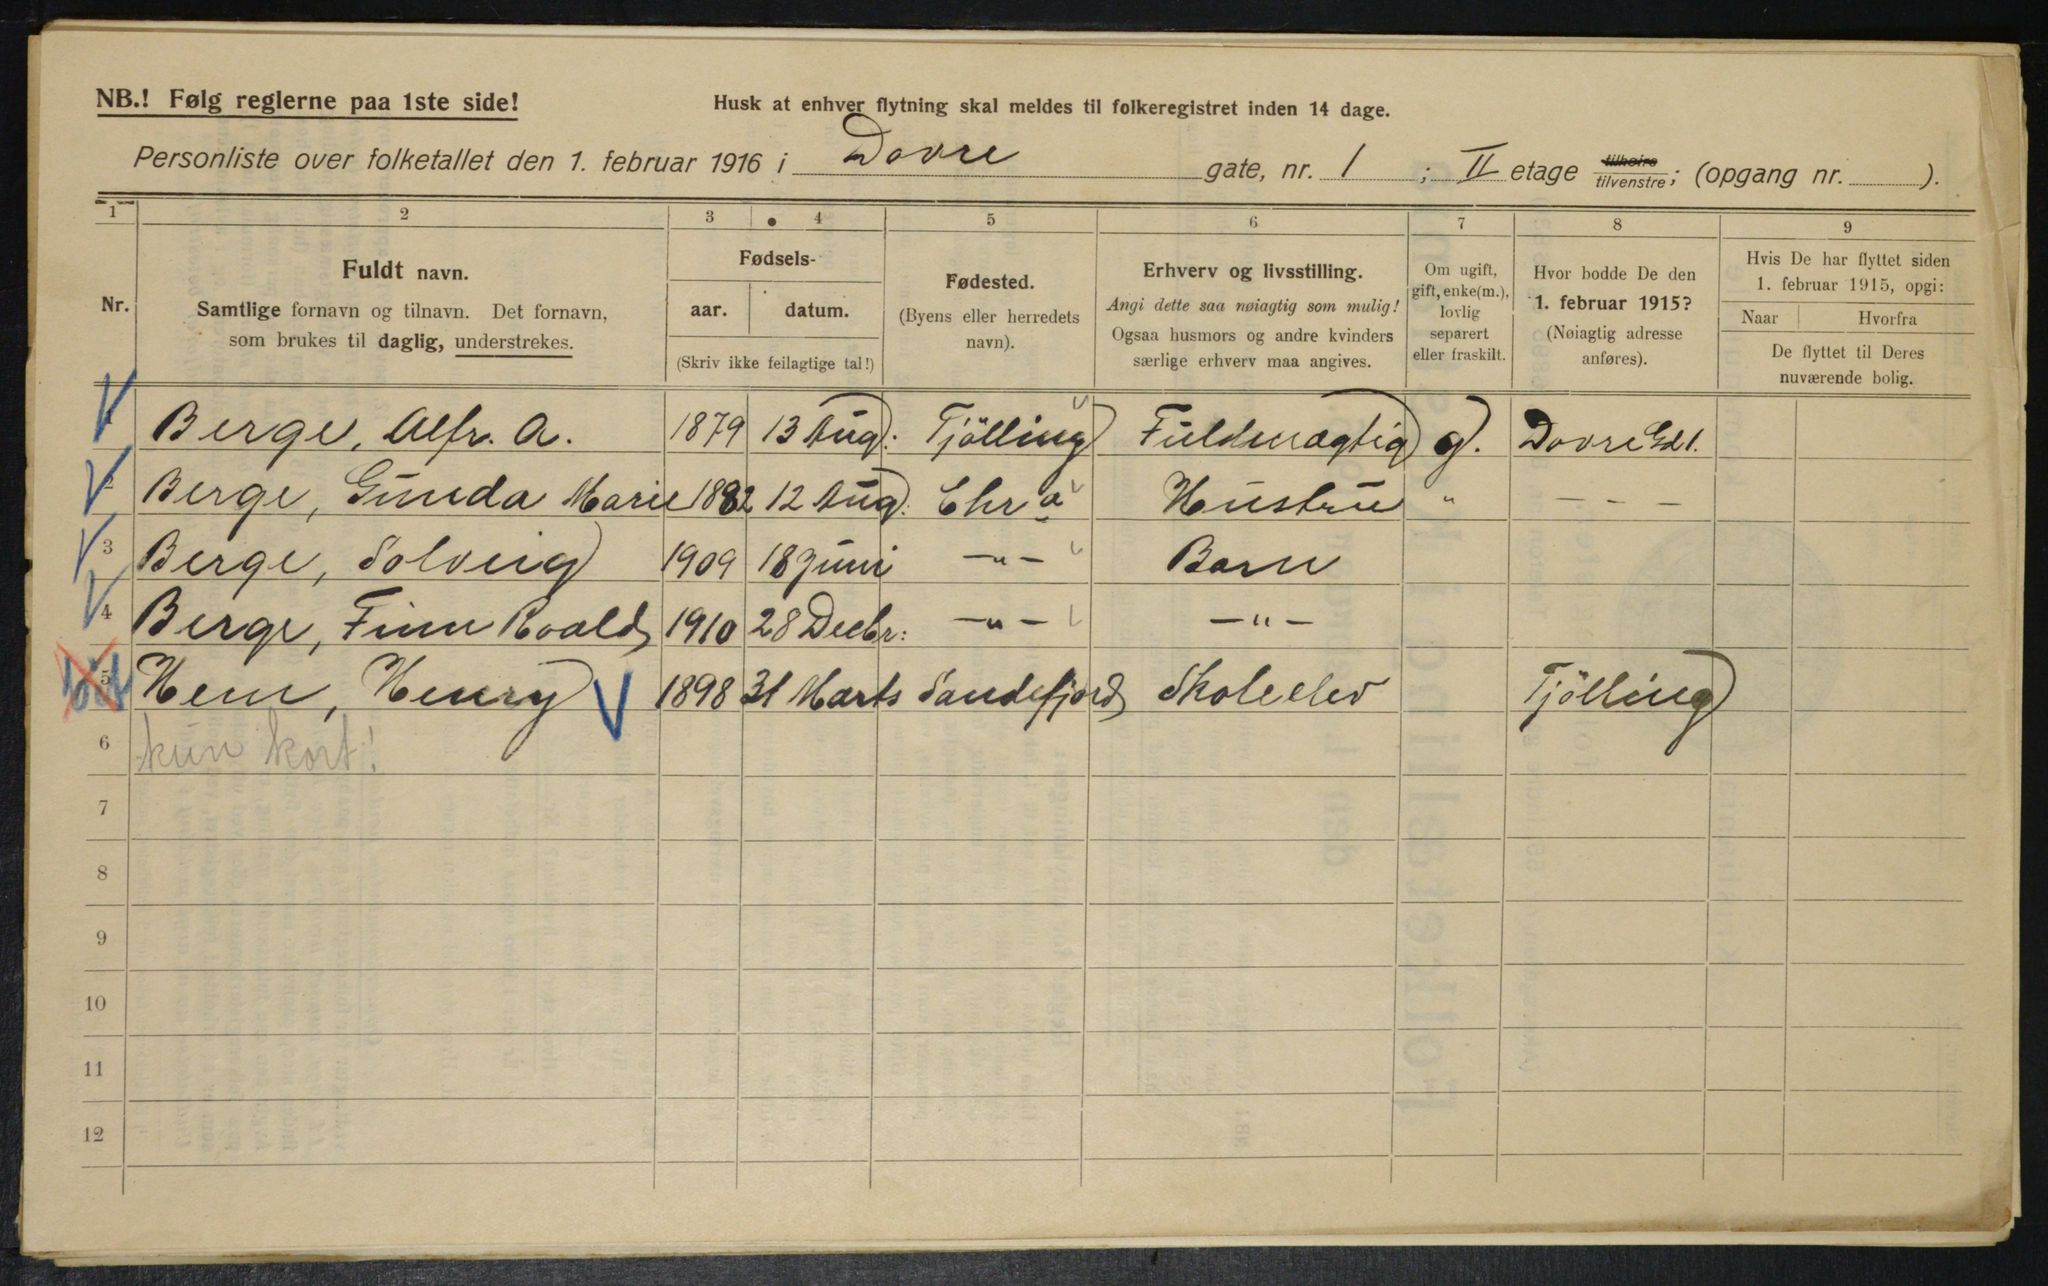 NB.! Følg reglerne paa 1ste side!
Husk at enhver flytning skal meldes til folkeregistret inden 14 dage.
Personliste over folketallet den 1. februar 1916 i Dovre gate, nr. 1 ; II etage tilhøire tilvenstre; (opgang nr. ).
1 2 3 4 5 6 7 8 9
Nr.
Fuldt navn.
Samtlige fornavn og tilnavn. Det fornavn,
som brukes til daglig, understrekes.
Fødsels-
aar. datum.
(Skriv ikke feilagtige tal!)
Fødested.
(Byens eller herredets
navn).
Erhverv og livsstilling.
Angi dette saa nøiagtig som mulig!
Ogsaa husmors og andre kvinders
særlige erhverv maa angives.
Om ugift,
gift, enke(m.),
lovlig
separert
eller fraskilt.
Hvor bodde De den
1. februar 1915?
(Nøiagtig adresse
anføres).
Hvis De har flyttet siden
1. februar 1915, opgi:
Naar Hvorfra
De flyttet til Deres
nuværende bolig.
1 Berge, Alfr. A. 1879 13 Aug: Tjölling Fuldmægtig g. Dovre Gd 1.
2 Berge, Gunda Marie 1882 12 Aug: Chr a Hustru " – – –
3 Berge, Solveig 1909 18 Juni – " – Barn
4 Berge, Finn Roald 1910 28 Decbr: – " – – " –
5 Hem, Henry 1898 31 Marts Sandefjord Skoleelev Tjölling
6 kun kort!
7
8
9
10
11
12